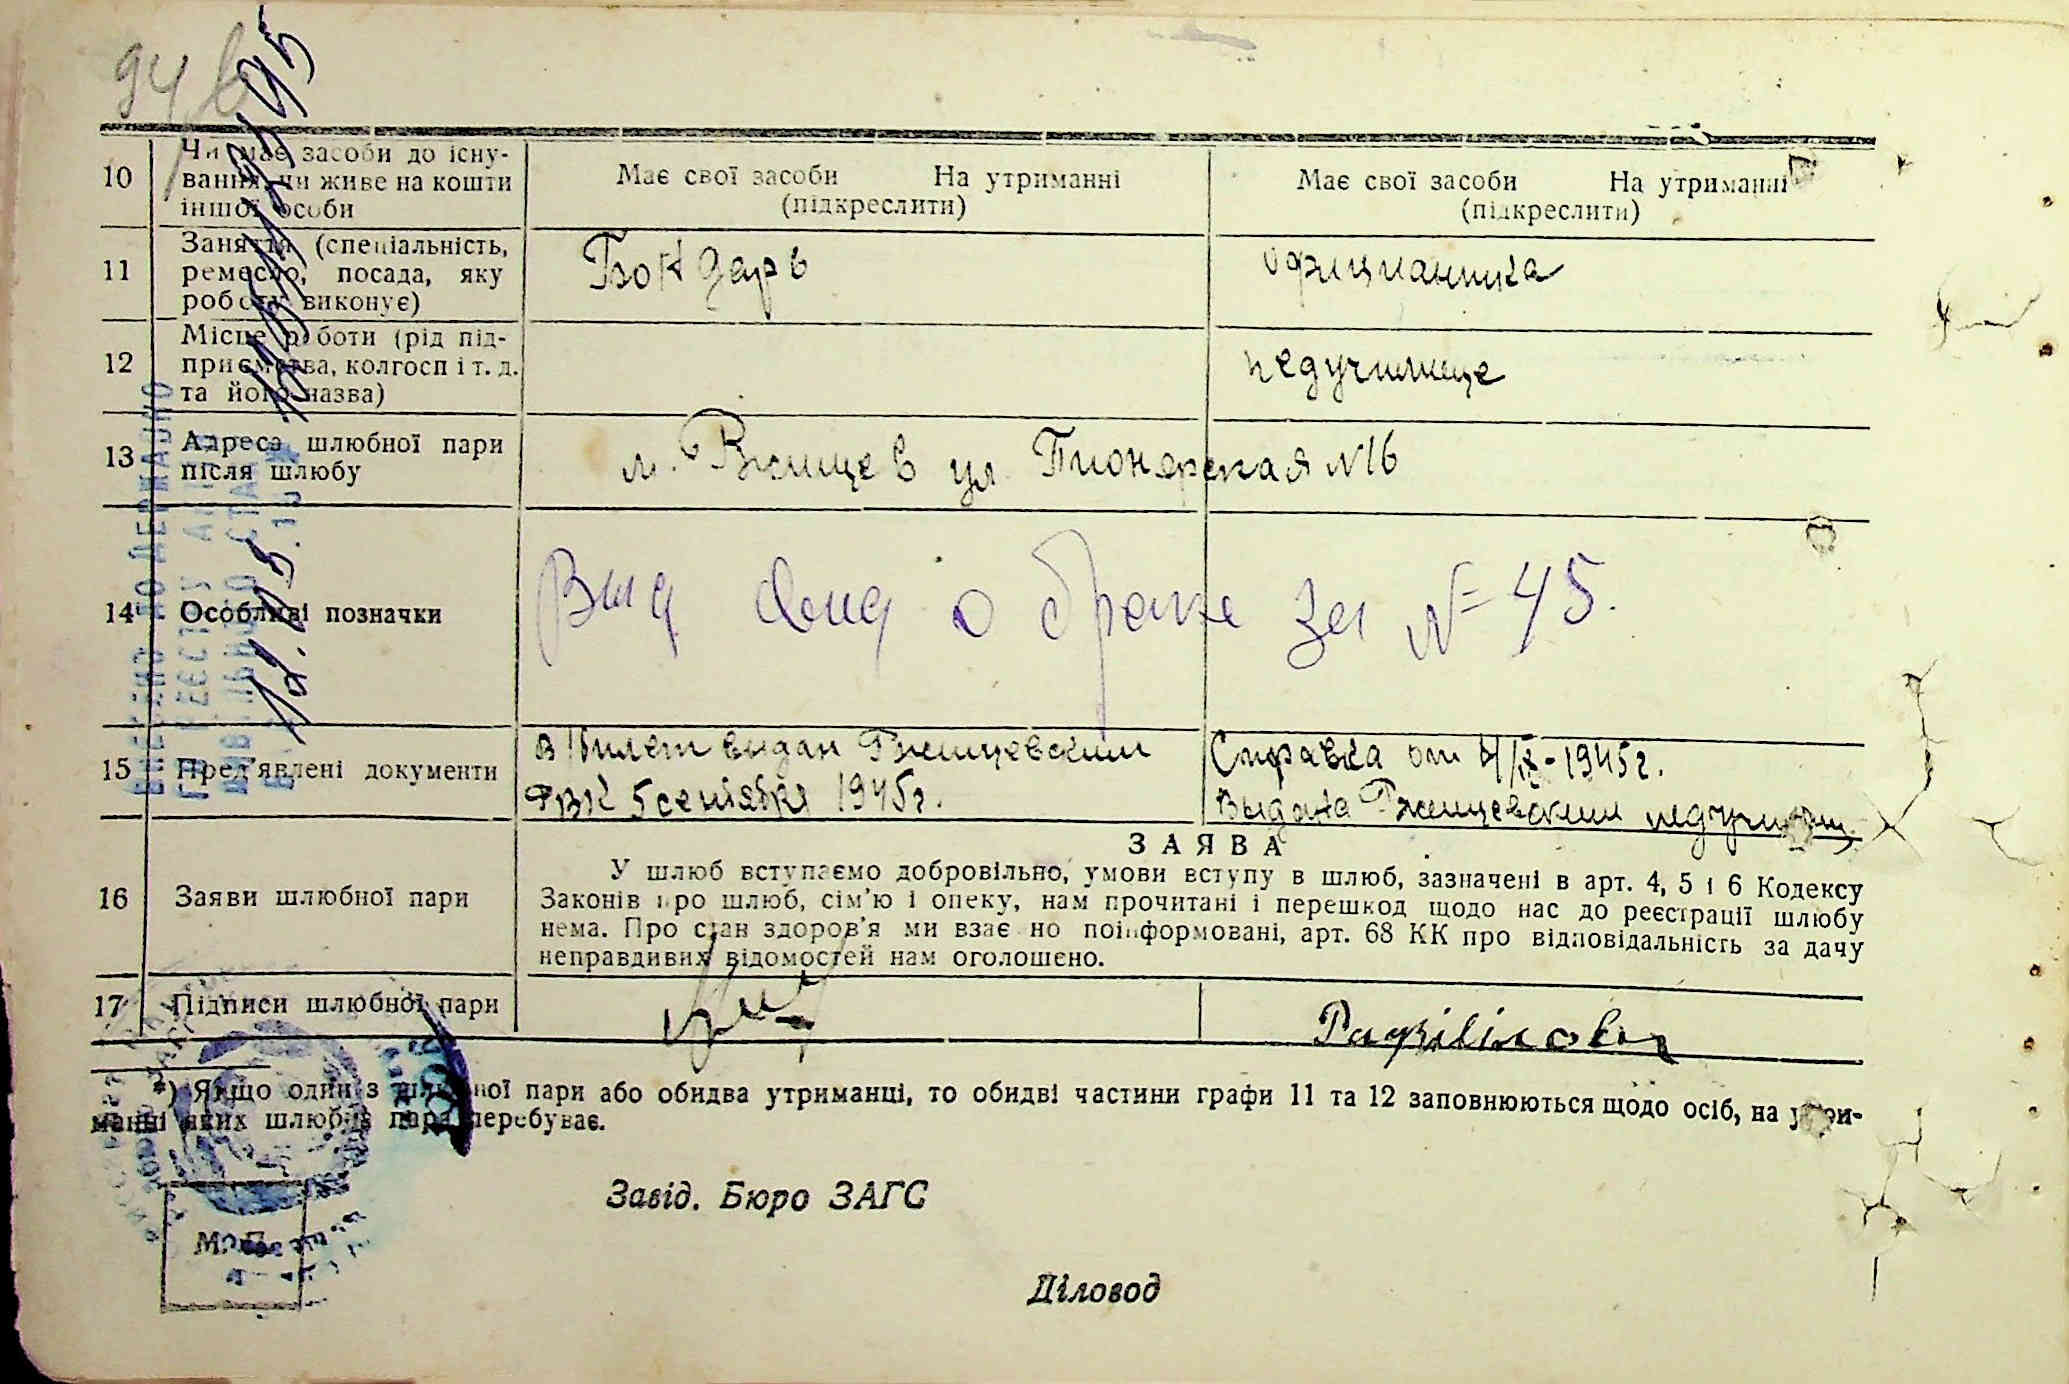 94
10
Чи має засоби до існу-
вання, чи живе на кошти
іншої особи
Має свої засоби На утриманні
(підкреслити)
Має свої засоби На утриманні
(підкреслити)
11
Заняття (спеціальність,
ремесло, посада, яку
роботу виконує)
Бондарь
официантка
12
Місце роботи (рід під-
приємства, колгосп і т. д.
та його назва)
педучилище
13
Адреса шлюбної пари
після шлюбу
м. Ржищев ул. Пионерская №16
14
Особливі позначки
Выд свид о браке за № 45.
15
Пред'явлені документи
в/билет выдан Ржищевским
РВК 5 сентября 1945г.
Справка от 4/IX-1945г.
Выдана Ржищевским педучилищ
16
Заяви шлюбної пари
ЗАЯВА
У шлюб вступаємо добровільно, умови вступу в шлюб, зазначені в арт. 4, 5 і 6 Кодексу
Законів про шлюб, сім'ю і опеку, нам прочитані і перешкод щодо нас до реєстрації шлюбу
нема. Про стан здоров'я ми взаємно поінформовані, арт. 68 КК про відповідальність за дачу
неправдивих відомостей нам оголошено.
17
Підписи шлюбної пари
*) Якщо один з шлюбної пари або обидва утриманці, то обидві частини графи 11 та 12 заповнюються щодо осіб, на утри-
манні яких шлюбна пара перебуває.
Завід. Бюро ЗАГС
М. П.
Діловод
ВНЕСЕНО ДО ДЕРЖАВНО